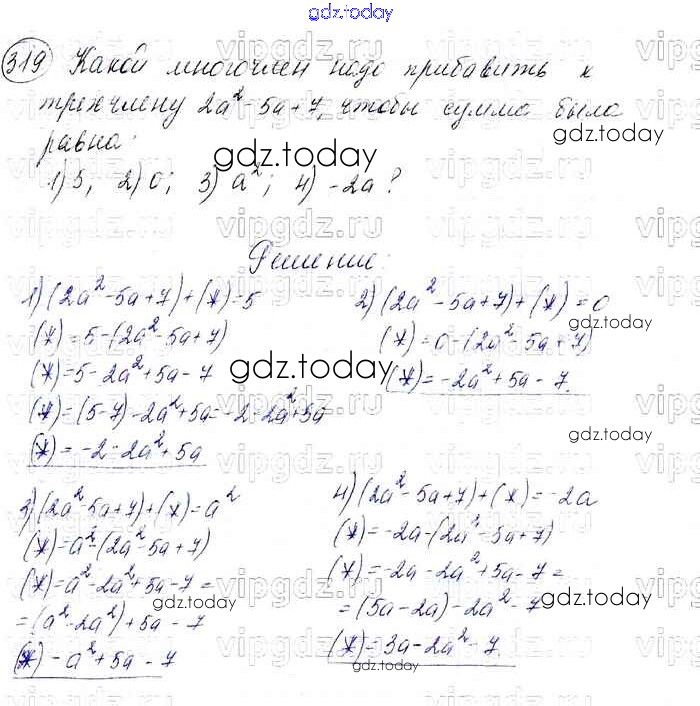 gdz.today
319 Какой многочлен надо прибавить к
трехчлену 2a² - 5a + 7, чтобы сумма была
равна:
gdz.today
gdz.today
1) 5; 2) 0; 3) a²; 4) -2a?
Решение:
1) (2a² - 5a + 7) + (*) = 5
(*) = 5 - (2a² - 5a + 7)
(*) = 5 - 2a² + 5a - 7
(*) = (5 - 7) - 2a² + 5a = -2 - 2a² + 5a
(*) = -2 - 2a² + 5a
2) (2a² - 5a + 7) + (*) = 0
gdz.today
(*) = 0 - (2a² - 5a + 7)
(*) = -2a² + 5a - 7.
gdz.today
gdz.today
3) (2a² - 5a + 7) + (*) = a²
(*) = a² - (2a² - 5a + 7)
(*) = a² - 2a² + 5a - 7 =
= (a² - 2a²) + 5a - 7
(*) - a² + 5a - 7
gdz.today
4) (2a² - 5a + 7) + (*) = -2a
(*) = -2a - (2a² - 5a + 7)
(*) = -2a - 2a² + 5a - 7 =
= (5a - 2a) - 2a² - 7
gdz.today
(*) = 3a - 2a² - 7
gdz.today
vipgdz.ru